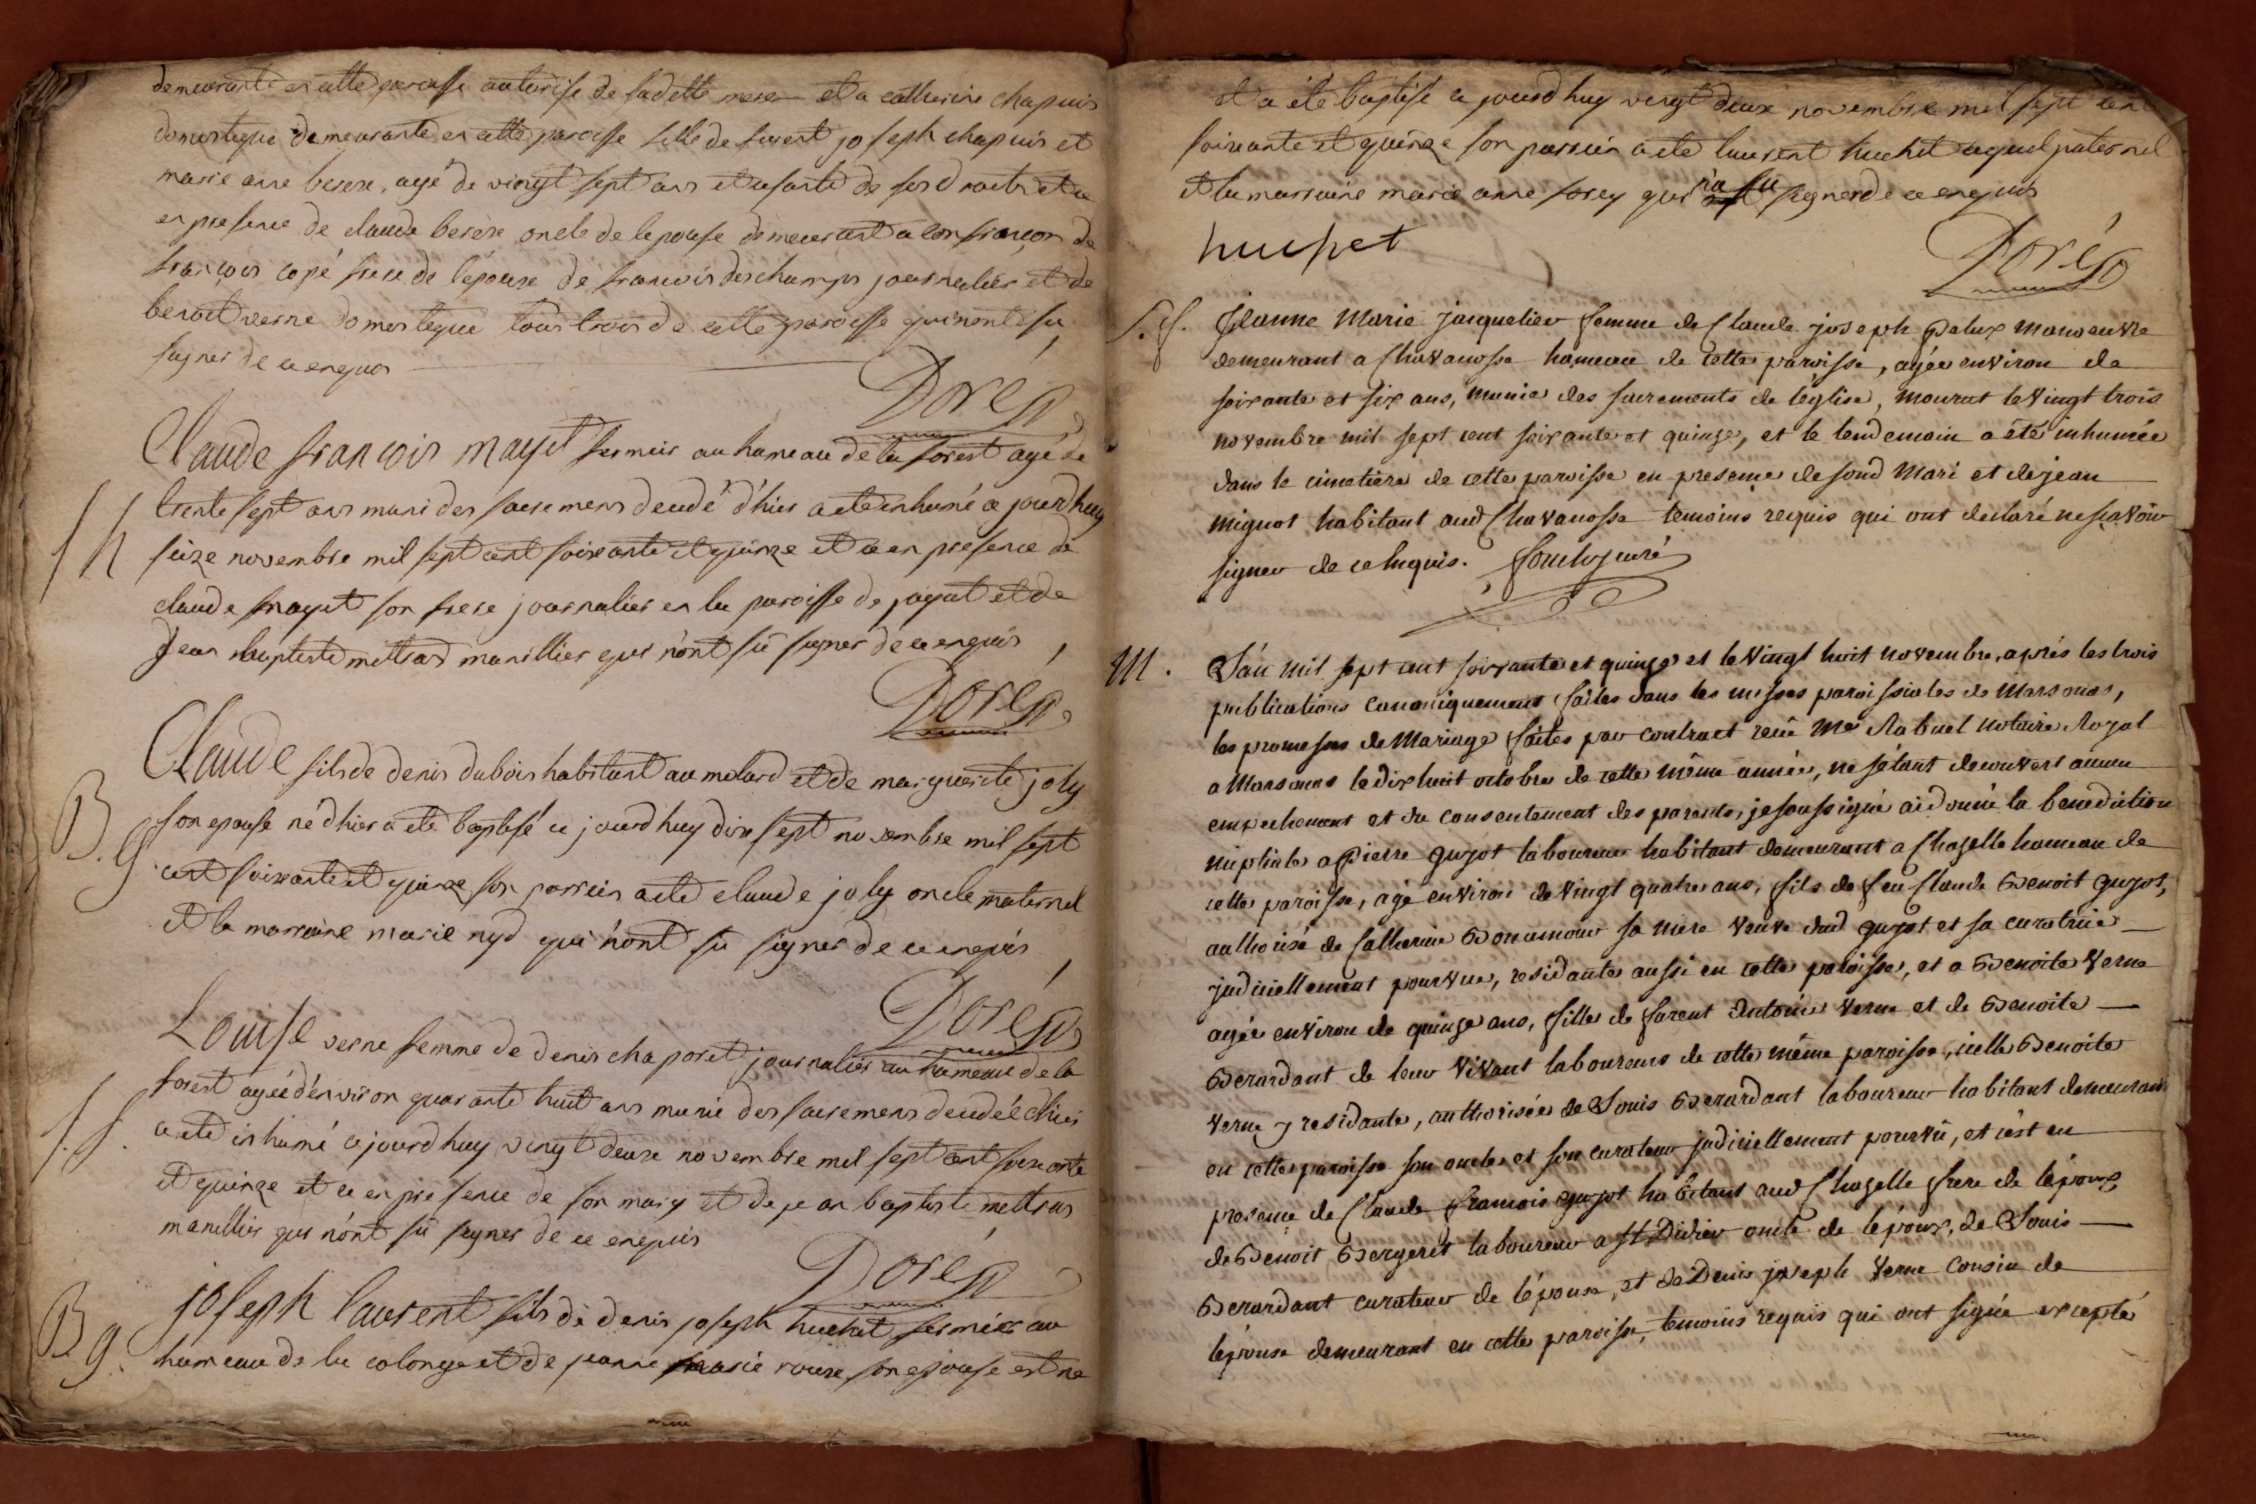 demeurante en cette paroisse autorisé de sadette mere et a catherine chapuis
domestique demeurante en cette paroisse fille de furent joseph chapuis et
marie anne berere, agé de vingt sept ans et usante de ses droits et ce
en presence de claude berere oncle de lepouse demeurant a confrançon de
françois copé frere de lépouse de francois deschamps journalier et de
benoit verne domestique tous trois de cette paroisse qui n'ont su
signer de ce enquis
Doré
S h
Claude françois mayet fermier au hameau de la forest agé de
trente sept ans muni des sacremens decedé d'hier a eté inhumé ce jourd'huy
seize novembre mil sept cent soixante et quinze et ce en presence de
claude mayet son frere journalier en la paroisse de jayat et de
Jean baptiste mettras manillier qui n'ont sû signer de ce enquis
Doré
B. g
Claude fils de denis dubois habitant au molard et de marguerite joly
son epouse né d'hier a eté baptisé ce jourd'huy dix sept novembre mil sept
cent soixante et quinze son parrein a eté claude joly oncle maternel
et la marraine marie nyd qui n'ont sû signer de ce enquis
Doré
S. f.
Louise verne femme de denis chaporet journalier au hameau de la
forest agée d'environ quarante huit ans munie des sacremens decedée d'hier
a eté inhumé ce jourd'huy vingt deux novembre mil sept cent soixante
et quinze et ce en presence de son mary et de jean baptiste mettras
manillier qui n'ont sû signer de ce enquis
Doré
B g.
joseph laurent fils de denis joseph huchet fermier au
hameau de la colonge et de jeanne marie roux son epouse est né
et a été baptisé ce jourd'huy vingt deux novembre mil sept cent
soixante et quinze son parrein a eté laurent huchet ayeul paternel
et la marraine marie anne forey qui n'a su signer de ce enquis
huchet
Doré
S. f.
Jeanne Marie jacquelier femme de Claude joseph Palux manoeuvre
demeurant a Chavanosse hameau de cette paroisse, agée environ de
soixante et six ans, munie des sacrements de l'eglise, mourut le vingt trois
novembre mil sept cent soixante et quinze, et le lendemain a été inhumée
dans le cimetiere de cette paroisse en presence de sond mari et de jean
mignot habitant aud Chavanosse temoins requis qui ont declaré ne sçavoir
signer de ce enquis.
M.
L'an mil sept cent soixante et quinze et le vingt huit novembre, aprés les trois
publications canoniquement faites dans les messes paroissiales de Marsonas,
les promesses de Mariage faites par contract reçû Me Rabuel notaire Royal
a Marsonas le dix huit octobre de cette même année, ne s'étant decouvert aucun
empechement et du consentement des parents, je soussigné ai donné la benediction
nuptiale a Pierre Guyot laboureur habitant demeurant a Chazelle hameau de
cette paroisse, agé environ de vingt quatre ans, fils de feu Claude Benoit Guyot,
authorisé de Catherine Bonamour sa mere veuve dud Guyot et sa curatrice
judiciellement pourvue, residante aussi en cette paroisse, et a Benoite Verne
agée environ de quinze ans, fille de furent Antoine Verne et de Benoite
Berardant de leur vivant laboureurs de cette même paroisse, icelle Benoite
Verne y residante, authorisée de Louis Berardant laboureur habitant demeurant
en cette paroisse son oncle et son curateur judiciellement pourvû, et c'est en
presence de Claude François Guyot habitant aud Chazelle frere de l'époux
de Benoit Bergeret laboureur a St Didier oncle de l'époux, de Louis
Berardant curateur de l'épouse, et de Denis joseph Verne cousin de
l'épouse demeurant en cette paroisse, temoins requis qui ont signé excepté